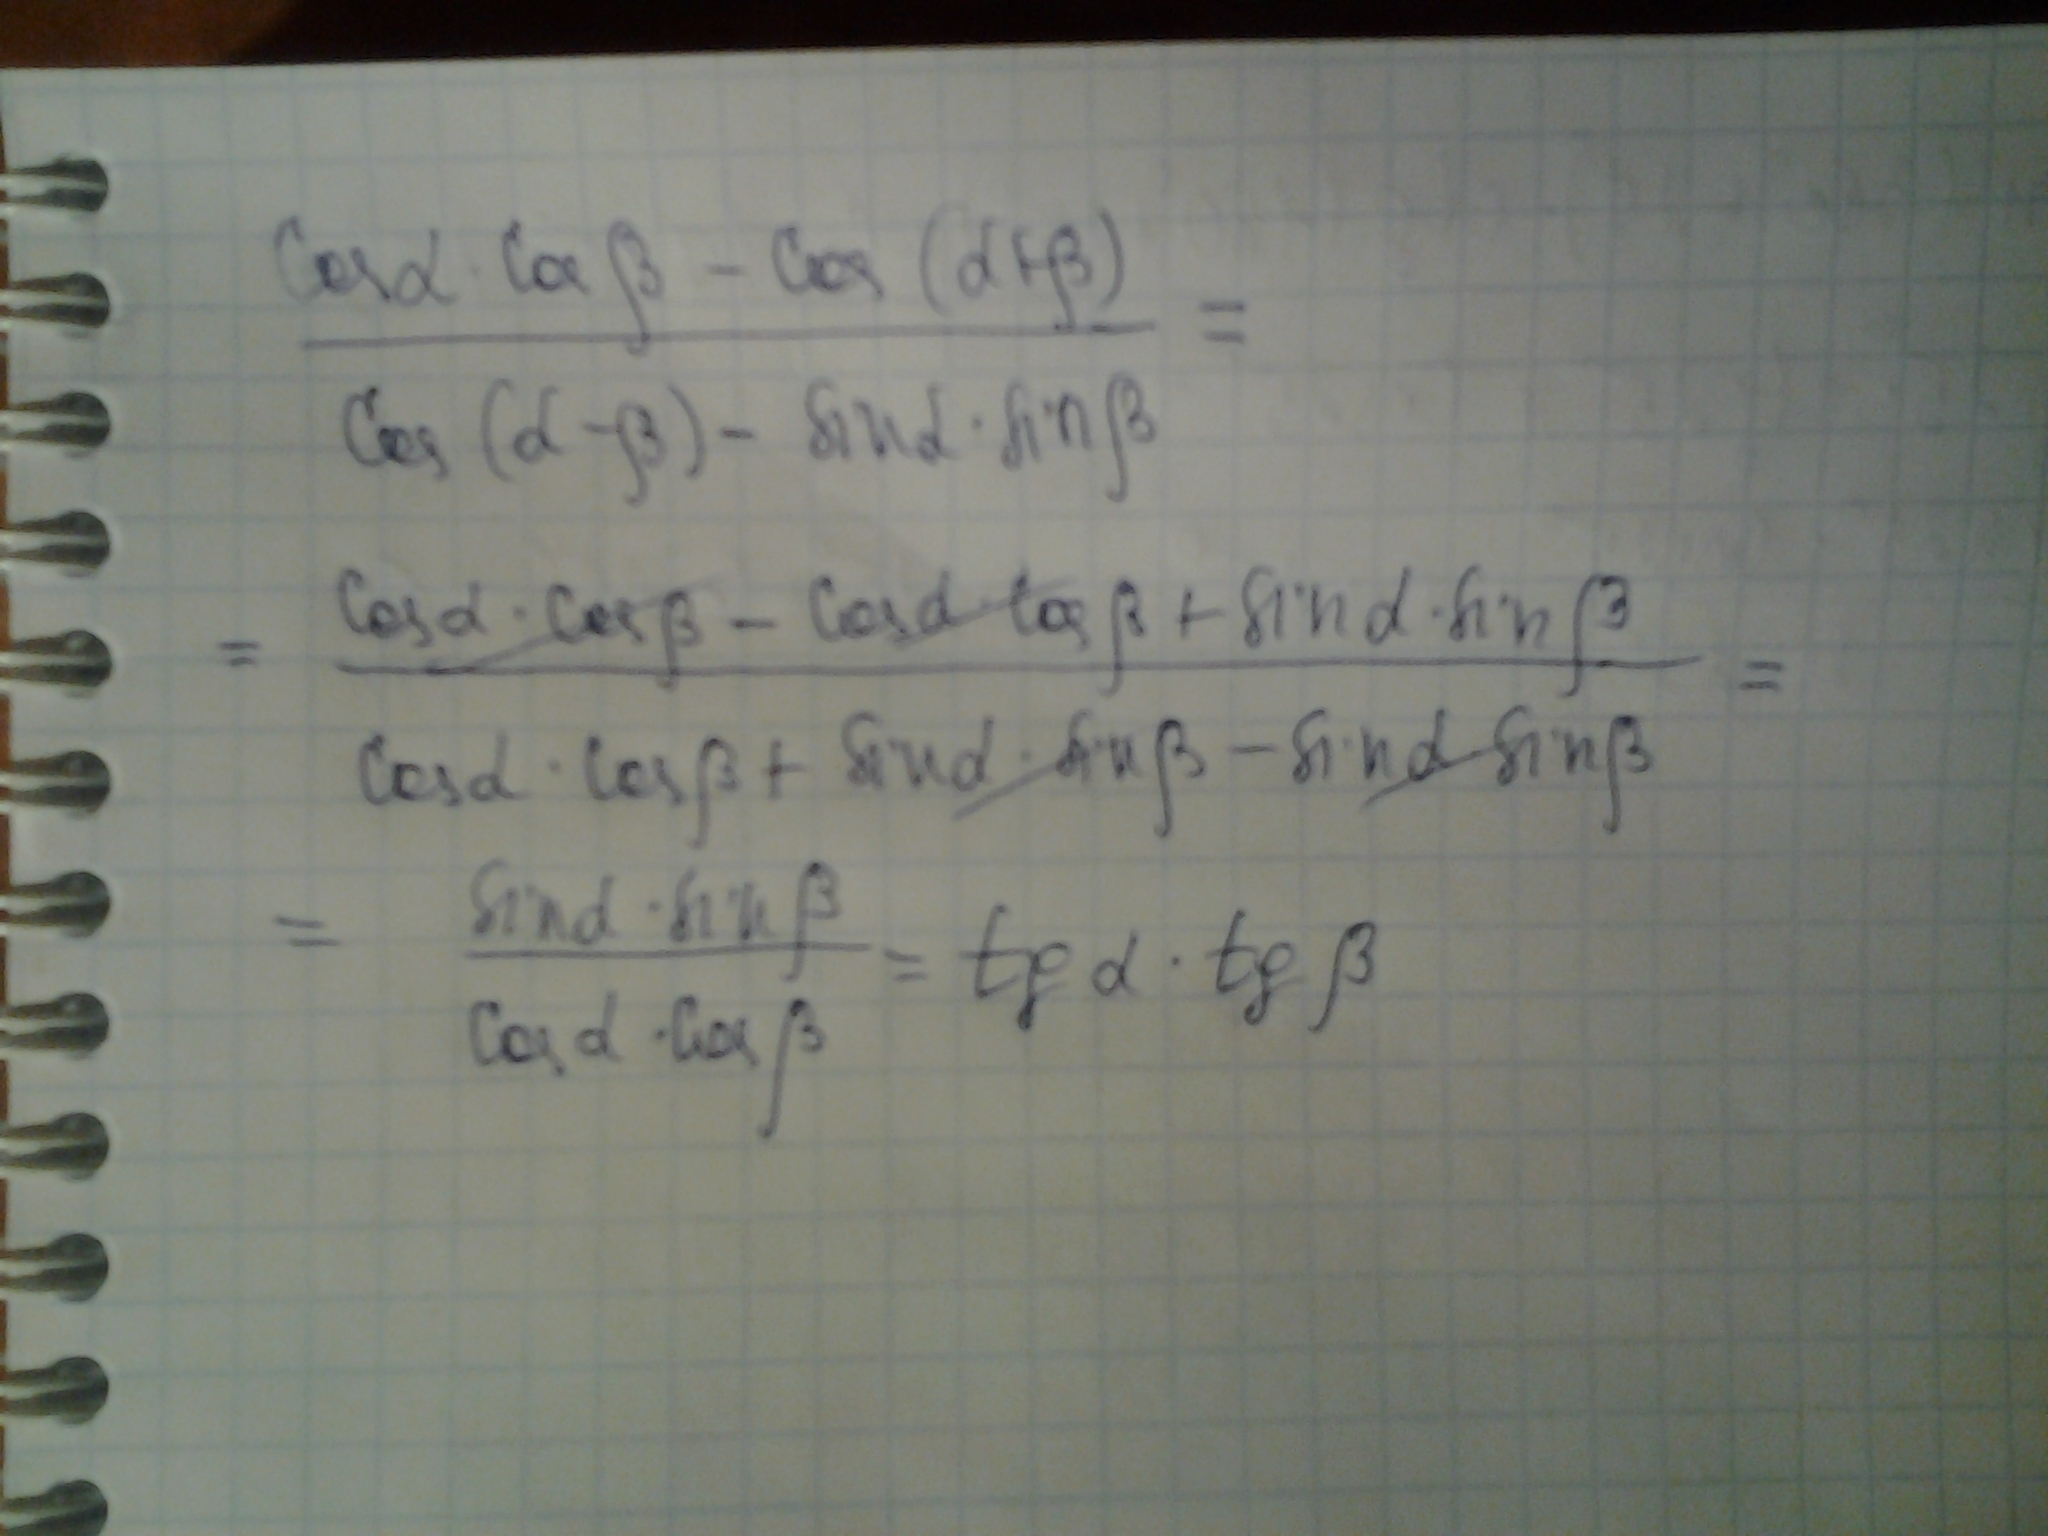 cosα · cosβ - cos (α+β) =
cos (α-β) - sinα · sinβ
= cosα · cosβ - cosα · cosβ + sinα · sinβ =
cosα · cosβ + sinα · sinβ - sinα · sinβ
= sinα · sinβ = tg α · tg β
cosα · cosβ